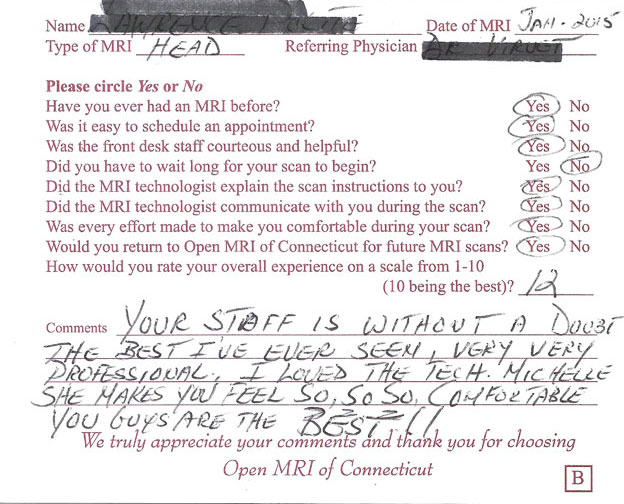 Name Date of MRI JAN. 2015
Type of MRI HEAD Referring Physician
Please circle Yes or No
Have you ever had an MRI before? Yes No
Was it easy to schedule an appointment? Yes No
Was the front desk staff courteous and helpful? Yes No
Did you have to wait long for your scan to begin? Yes No
Did the MRI technologist explain the scan instructions to you? Yes No
Did the MRI technologist communicate with you during the scan? Yes No
Was every effort made to make you comfortable during your scan? Yes No
Would you return to Open MRI of Connecticut for future MRI scans? Yes No
How would you rate your overall experience on a scale from 1-10
(10 being the best)? 12
Comments YOUR STAFF IS WITHOUT A DOUBT
THE BEST I'VE EVER SEEN, VERY VERY
PROFESSIONAL, I LOVED THE TECH. MICHELLE
SHE MAKES YOU FEEL SO, SO SO, COMFORTABLE
YOU GUYS ARE THE BEST!!
We truly appreciate your comments and thank you for choosing
Open MRI of Connecticut
B